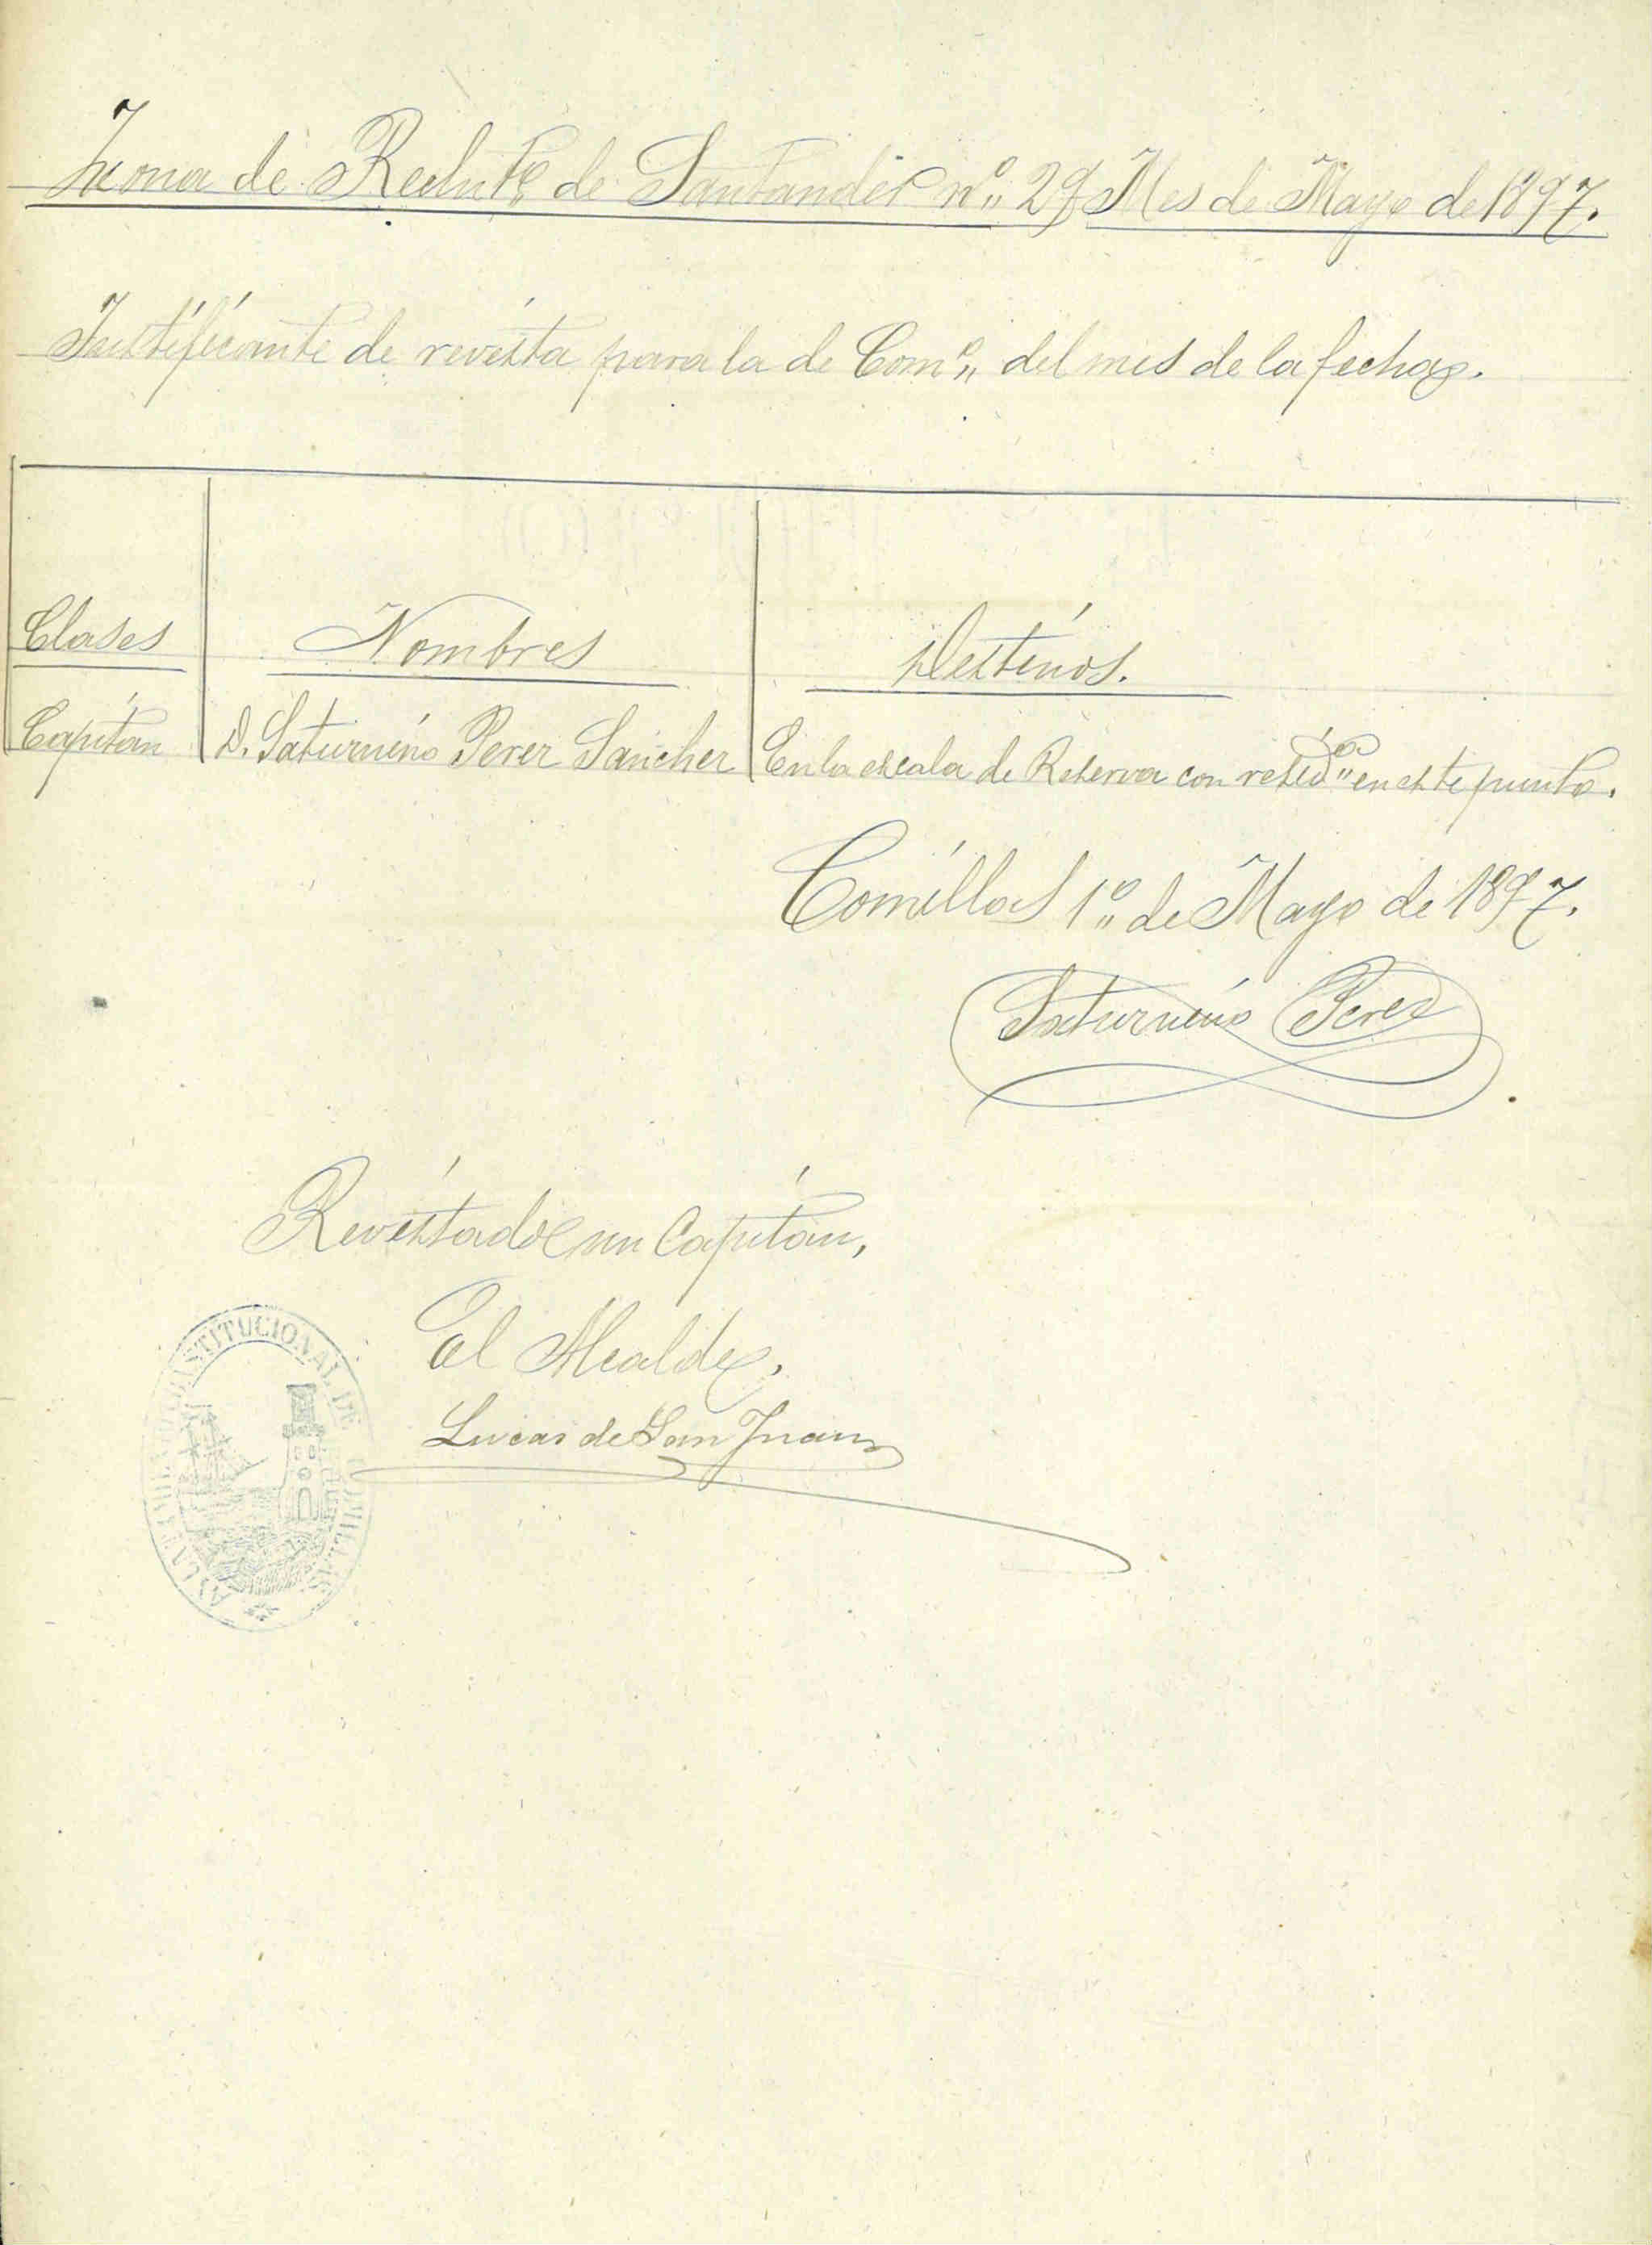 Zona de Reclutº de Santander nº 29 Mes de Mayo de 1897.
Justificante de revista para la de Comº del mes de la fecha.
Clases Nombres Destinos.
Capitán D. Saturnino Perez Sanchez En la escala de Reserva con residª en este punto.
Comillas 1º de Mayo de 1897.
Saturnino Perez
Revistado un Capitán,
El Alcalde,
Lucas de San Juan
ALCALDIA CONSTITUCIONAL DE COMILLAS